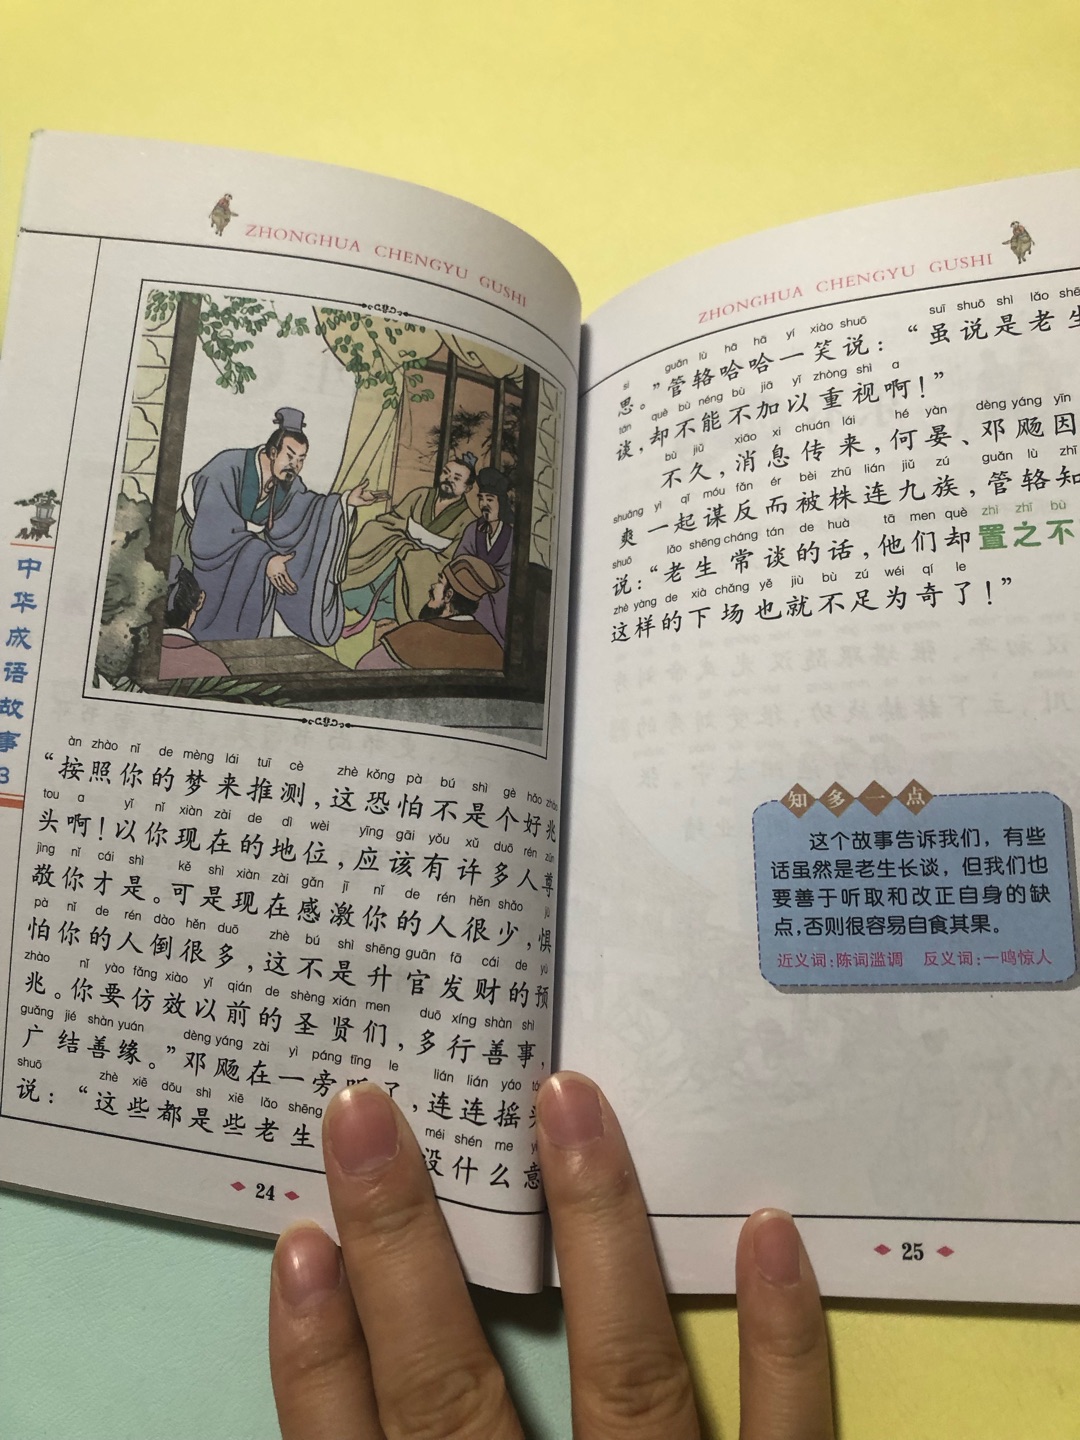 ZHONGHUA CHENGYU GUSHI
中华成语故事
3
àn zhào nǐ de mèng lái tuī cè zhè kǒng pà bú shì gè hǎo zhào
“按照你的梦来推测，这恐怕不是个好兆
tou a yǐ nǐ xiàn zài de dì wèi yīng gāi yǒu xǔ duō rén zūn
头啊！以你现在的地位，应该有许多人尊
jìng nǐ cái shì kě shì xiàn zài gǎn jī nǐ de rén hěn shǎo jù
敬你才是。可是现在感激你的人很少，惧
pà nǐ de rén dào hěn duō zhè bú shì shēng guān fā cái de yù
怕你的人倒很多，这不是升官发财的预
zhào nǐ yào fǎng xiào yǐ qián de shèng xián men duō xíng shàn shì
兆。你要仿效以前的圣贤们，多行善事，
guǎng jié shàn yuán dèng yáng zài yì páng tīng le lián lián yáo
广结善缘。”邓飏在一旁听了，连连摇
shuō zhè xiē dōu shì xiē lǎo shēng méi shén me
说：“这些都是些老生 没什么意
24
ZHONGHUA CHENGYU GUSHI
si guǎn lù hā hā yí xiào shuō suī shuō shì lǎo
思。”管辂哈哈一笑说：“虽说是老生
tán què bù néng bù jiā yǐ zhòng shì a
谈，却不能不加以重视啊！”
bù jiǔ xiāo xi chuán lái hé yàn dèng yáng yīn
不久，消息传来，何晏、邓飏因
shuǎng yì qǐ móu fǎn ér bèi zhū lián jiǔ zú guǎn lù zhī
爽一起谋反而被株连九族，管辂知
shuō lǎo shēng cháng tán de huà tā men què zhì zhī bù
说：“老生常谈的话，他们却置之不
zhè yàng de xià chǎng yě jiù bù zú wéi qí le
这样的下场也就不足为奇了！”
知多一点
这个故事告诉我们，有些
话虽然是老生长谈，但我们也
要善于听取和改正自身的缺
点，否则很容易自食其果。
近义词：陈词滥调 反义词：一鸣惊人
25